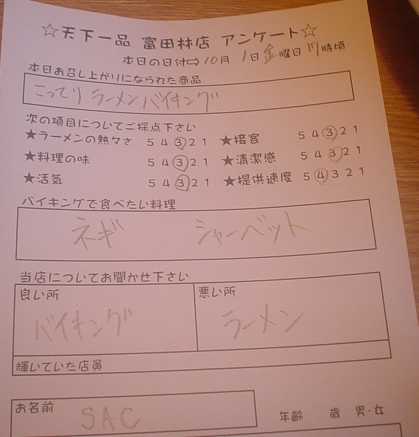 ☆天下一品 富田林店 アンケート☆
本日の日付⇨10月 1日 金曜日 17時頃
本日お召し上がりになられた商品
こってり ラーメン バイキング
次の項目についてご採点下さい
★ラーメンの熱々さ 5 4 3 2 1 ★接客 5 4 3 2 1
★料理の味 5 4 3 2 1 ★清潔感 5 4 3 2 1
★活気 5 4 3 2 1 ★提供速度 5 4 3 2 1
バイキングで食べたい料理
ネギ シャーベット
当店についてお聞かせ下さい
良い所 悪い所
バイキング ラーメン
輝いていた店員
お名前 SAC 年齢 歳 男・女